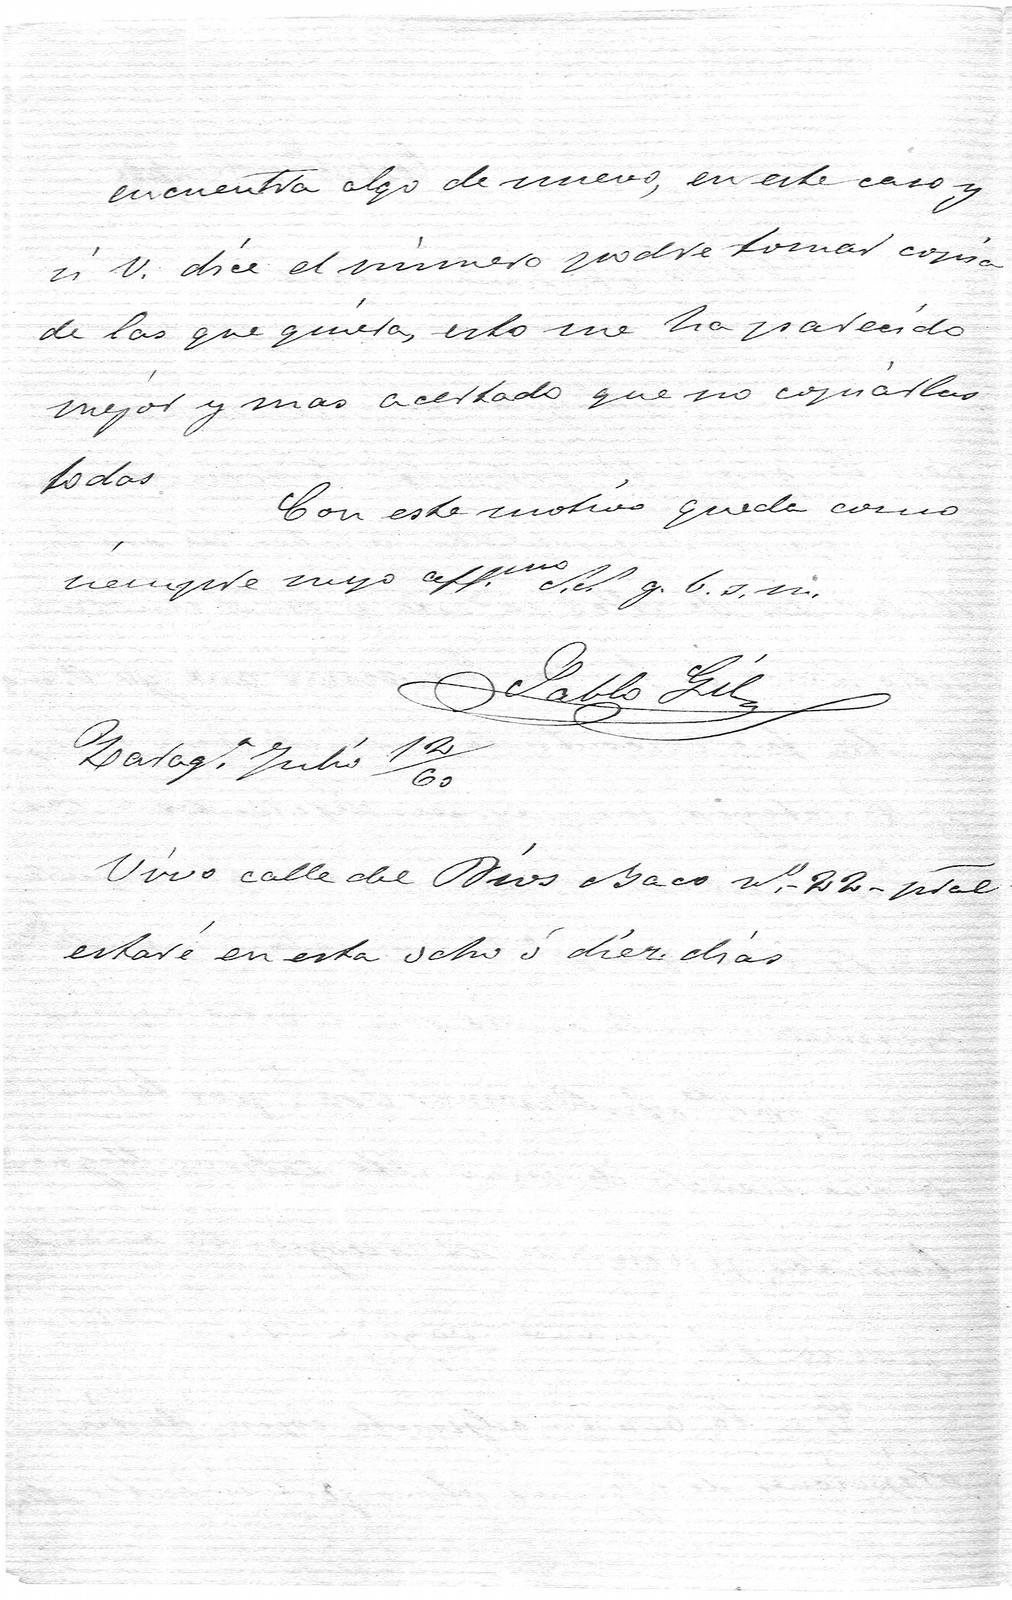 encuentra algo de nuevo, en este caso y
si V. dice el número podre tomar copia
de las que quiera, esto me ha parecido
mejor y mas acertado que no copiarlas
todas
Con este motivo queda como
siempre suyo aff.mo S.S. q. b. s. m.
Pablo Gil
Zarag.a Julio 12/60
Vivo calle del Dios Baco n.o 22 - pral
estaré en esta ocho ó diez dias